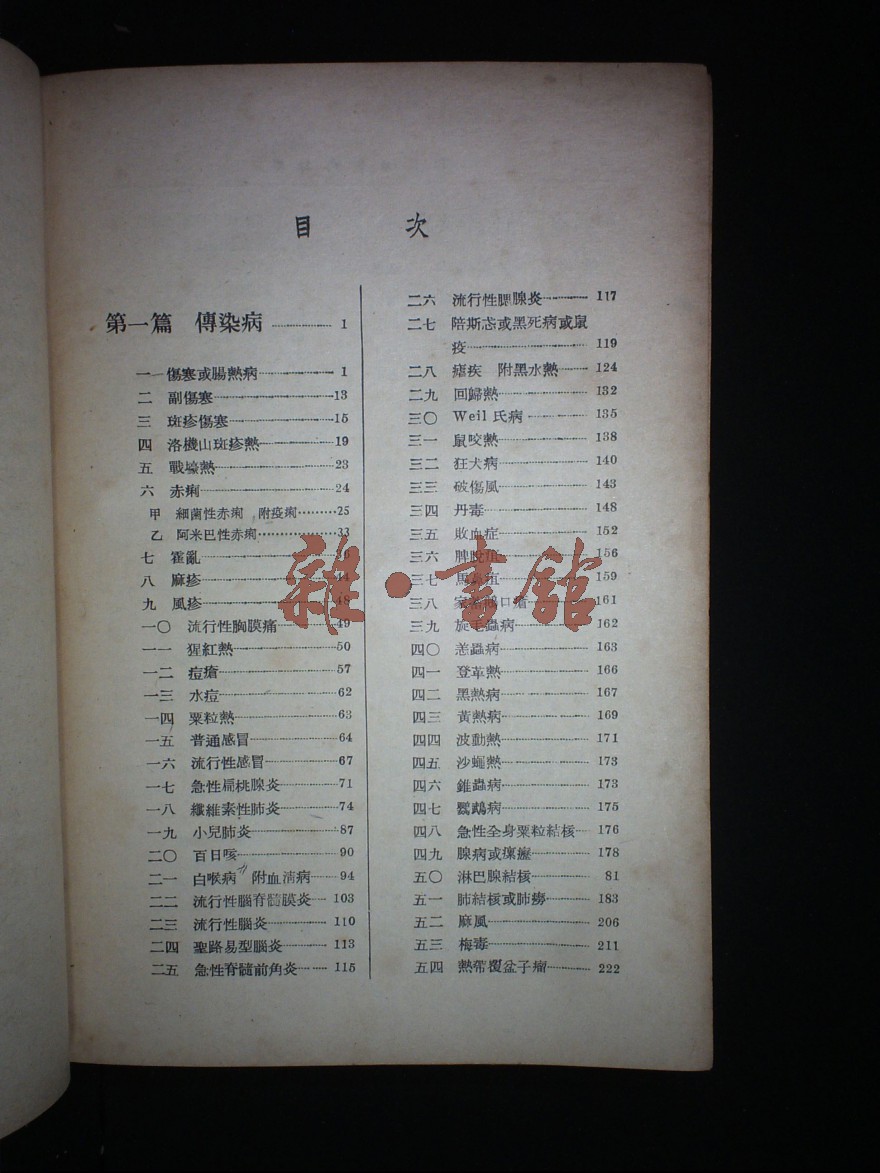 目 次
第一篇 傳染病 1
一 傷寒或腸熱病 1
二 副傷寒 13
三 斑疹傷寒 15
四 洛機山斑疹熱 19
五 戰壕熱 23
六 赤痢 24
甲 細菌性赤痢 附疫痢 25
乙 阿米巴性赤痢 33
七 霍亂 36
八 麻疹 44
九 風疹 48
一〇 流行性胸膜痛 49
一一 猩紅熱 50
一二 痘瘡 57
一三 水痘 62
一四 粟粒熱 63
一五 普通感冒 64
一六 流行性感冒 67
一七 急性扁桃腺炎 71
一八 纖維素性肺炎 74
一九 小兒肺炎 87
二〇 百日咳 90
二一 白喉病 附血清病 94
二二 流行性腦脊髓膜炎 103
二三 流行性腦炎 110
二四 聖路易型腦炎 113
二五 急性脊髓前角炎 115
二六 流行性腮腺炎 117
二七 陪斯忒或黑死病或鼠
疫 119
二八 瘧疾 附黑水熱 124
二九 回歸熱 132
三〇 Weil 氏病 135
三一 鼠咬熱 138
三二 狂犬病 140
三三 破傷風 143
三四 丹毒 148
三五 敗血症 152
三六 脾脫疽 156
三七 馬鼻疽 159
三八 家畜 口瘡 161
三九 旋毛蟲病 162
四〇 恙蟲病 163
四一 登革熱 166
四二 黑熱病 167
四三 黃熱病 169
四四 波動熱 171
四五 沙蠅熱 173
四六 錐蟲病 173
四七 鸚鵡病 175
四八 急性全身粟粒結核 176
四九 腺病或瘰癧 178
五〇 淋巴腺結核 81
五一 肺結核或肺癆 183
五二 麻風 206
五三 梅毒 211
五四 熱帶覆盆子瘤 222
雜·書館